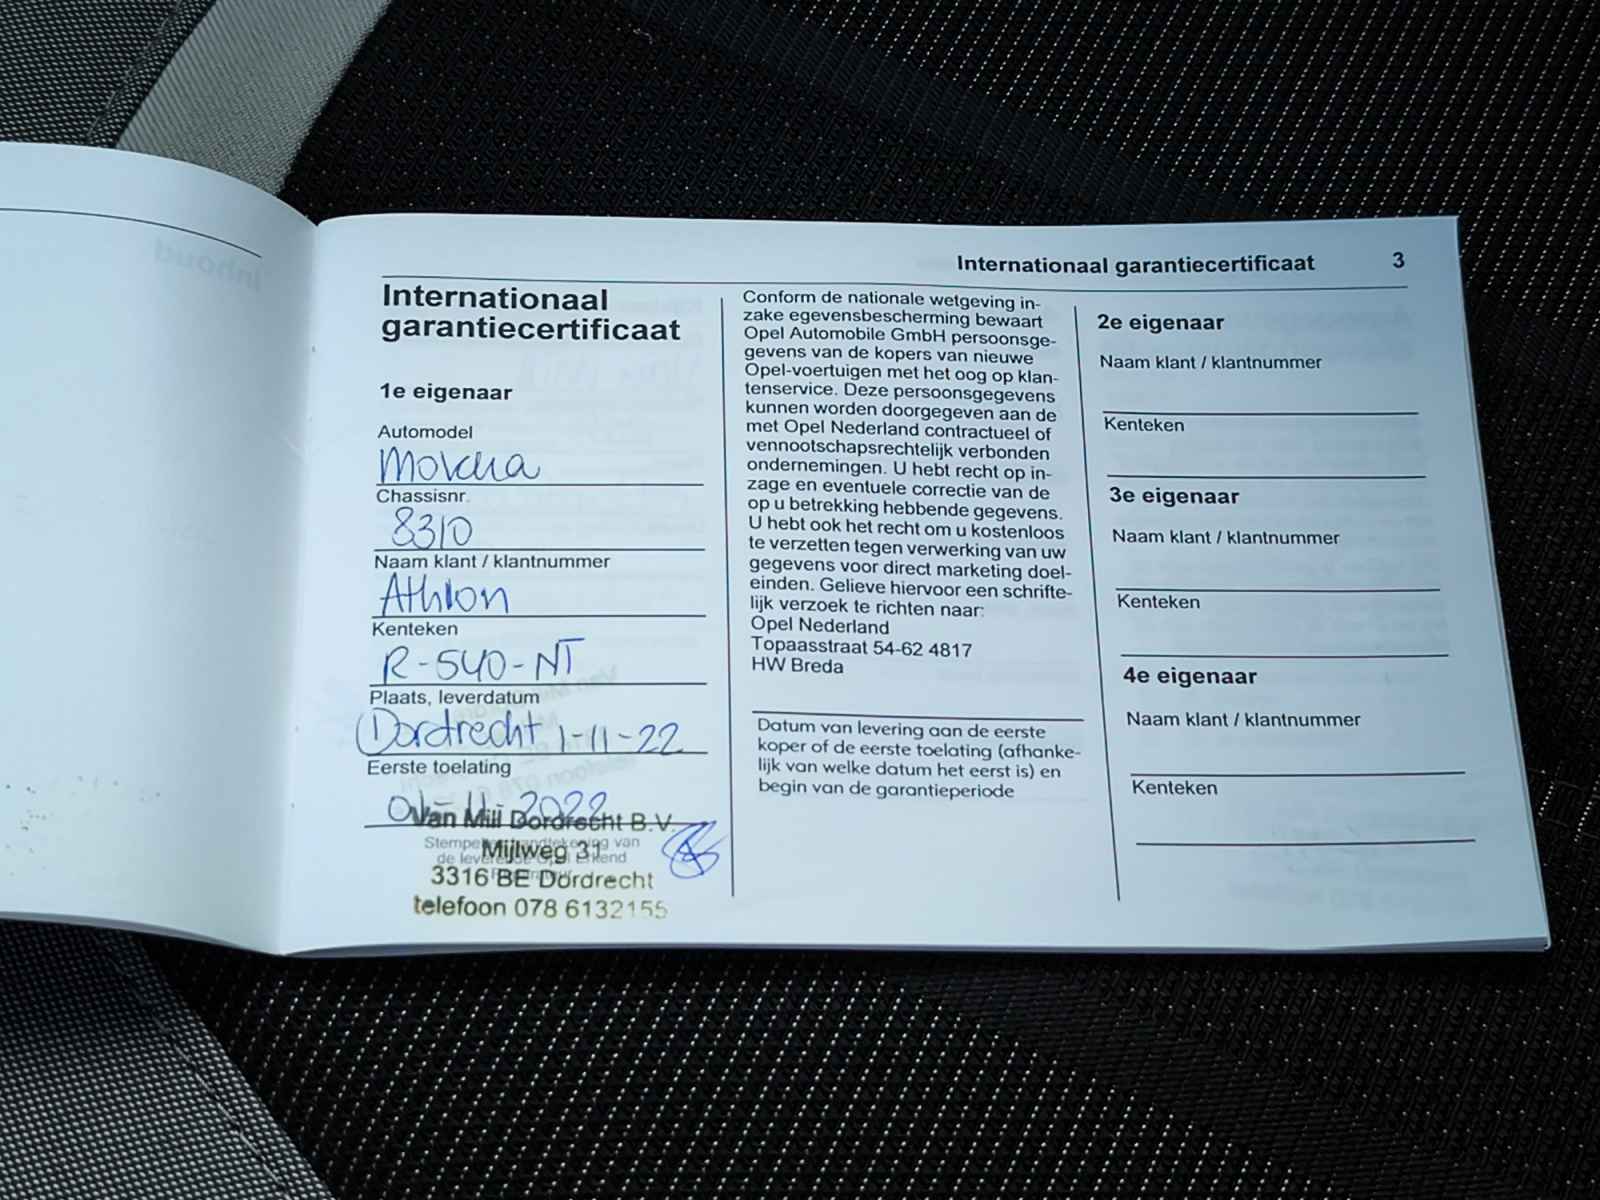 Internationaal garantiecertificaat 3
Internationaal
garantiecertificaat
1e eigenaar
Automodel
Mokka
Chassisnr.
8310
Naam klant / klantnummer
Athlon
Kenteken
R-540-NT
Plaats, leverdatum
Dordrecht 1-11-22
Eerste toelating
01-11-2022
Van Mill Dordrecht B.V.
Mijlweg 31
3316 BE Dordrecht
telefoon 078 6132155
Conform de nationale wetgeving in-
zake egevensbescherming bewaart
Opel Automobile GmbH persoonsge-
gevens van de kopers van nieuwe
Opel-voertuigen met het oog op klan-
tenservice. Deze persoonsgegevens
kunnen worden doorgegeven aan de
met Opel Nederland contractueel of
vennootschapsrechtelijk verbonden
ondernemingen. U hebt recht op in-
zage en eventuele correctie van de
op u betrekking hebbende gegevens.
U hebt ook het recht om u kostenloos
te verzetten tegen verwerking van uw
gegevens voor direct marketing doel-
einden. Gelieve hiervoor een schrifte-
lijk verzoek te richten naar:
Opel Nederland
Topaasstraat 54-62 4817
HW Breda
Datum van levering aan de eerste
koper of de eerste toelating (afhanke-
lijk van welke datum het eerst is) en
begin van de garantieperiode
2e eigenaar
Naam klant / klantnummer
Kenteken
3e eigenaar
Naam klant / klantnummer
Kenteken
4e eigenaar
Naam klant / klantnummer
Kenteken